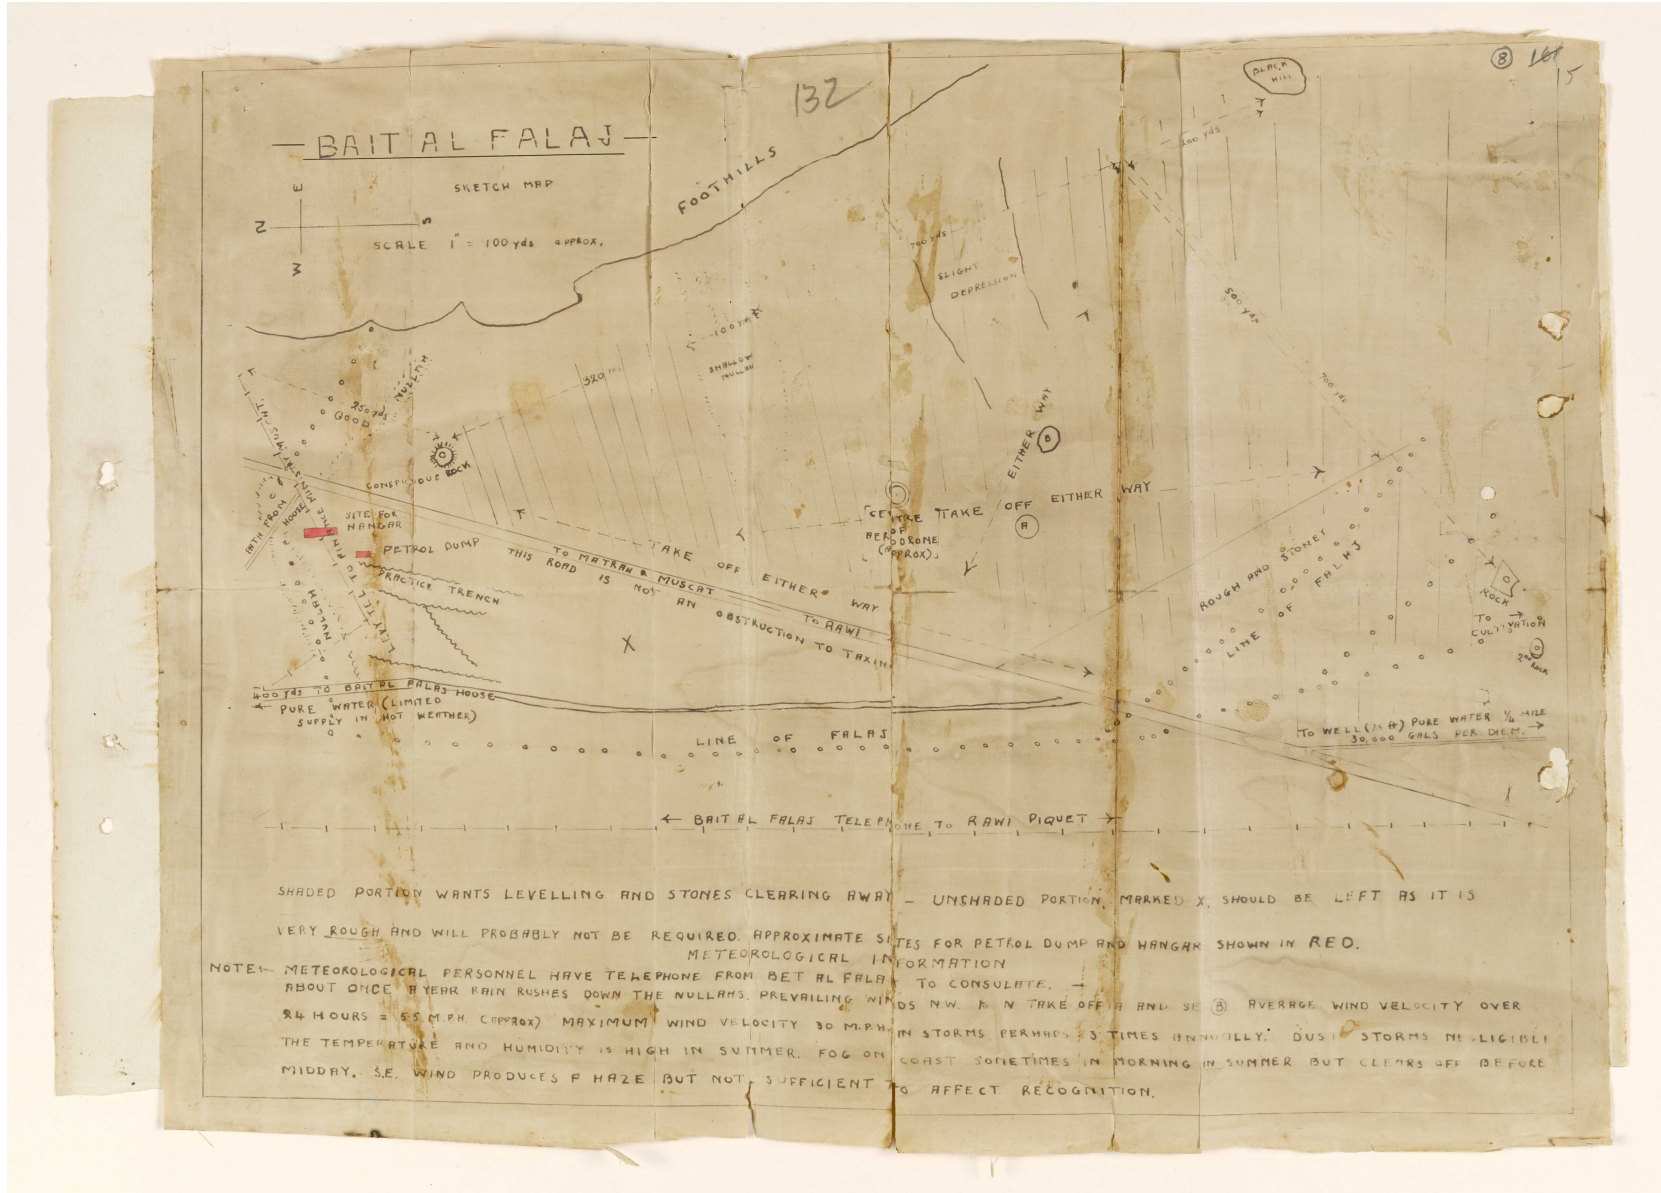 132
8
15
BLACK
HILL
BAIT AL FALAJ
SKETCH MAP
E
N
S
W
SCALE 1" = 100 yds APPROX.
FOOTHILLS
200 yds
200 yds
SLIGHT
DEPRESSION
500 yds
100 yds
SHALLOW
NULLAH
320
NULLAH
250 yds
GOOD
CONSPICUOUS ROCK
EITHER WAY
B
TAKE OFF EITHER WAY
A
CENTRE
OF
AERODROME
(APPROX)
PATH FROM
HOUSE
SITE FOR
HANGAR
PETROL DUMP
PRACTICE TRENCH
NULLAH
TAKE OFF EITHER WAY
TO MATRAH & MUSCAT
TO RAWI
THIS ROAD IS NOT AN OBSTRUCTION TO TAXIN
X
ROUGH AND STONEY
LINE OF FALAJ
ROCK
TO
CULTIVATION
2nd ROCK
400 yds TO BAIT AL FALAJ HOUSE
PURE WATER (LIMITED
SUPPLY IN HOT WEATHER)
LINE OF FALAJ
TO WELL PURE WATER ¼ MILE
30,000 GALS PER DIEM.
BAIT AL FALAJ TELEPHONE TO RAWI PIQUET
SHADED PORTION WANTS LEVELLING AND STONES CLEARING AWAY – UNSHADED PORTION, MARKED X, SHOULD BE LEFT AS IT IS
VERY ROUGH AND WILL PROBABLY NOT BE REQUIRED. APPROXIMATE SITES FOR PETROL DUMP AND HANGAR SHOWN IN RED.
METEOROLOGICAL INFORMATION
NOTE:– METEOROLOGICAL PERSONNEL HAVE TELEPHONE FROM BET AL FALAJ TO CONSULATE. –
ABOUT ONCE A YEAR RAIN RUSHES DOWN THE NULLAHS. PREVAILING WINDS N.W. & N TAKE OFF A AND SE B AVERAGE WIND VELOCITY OVER
24 HOURS = 5.5 M.P.H. (APPROX) MAXIMUM WIND VELOCITY 30 M.P.H. IN STORMS PERHAPS 3 TIMES ANNUALLY. DUST STORMS NEGLIGIBLE
THE TEMPERATURE AND HUMIDITY IS HIGH IN SUMMER. FOG ON COAST SOMETIMES IN MORNING IN SUMMER BUT CLEARS OFF BEFORE
MIDDAY. S.E. WIND PRODUCES A HAZE BUT NOT SUFFICIENT TO AFFECT RECOGNITION.